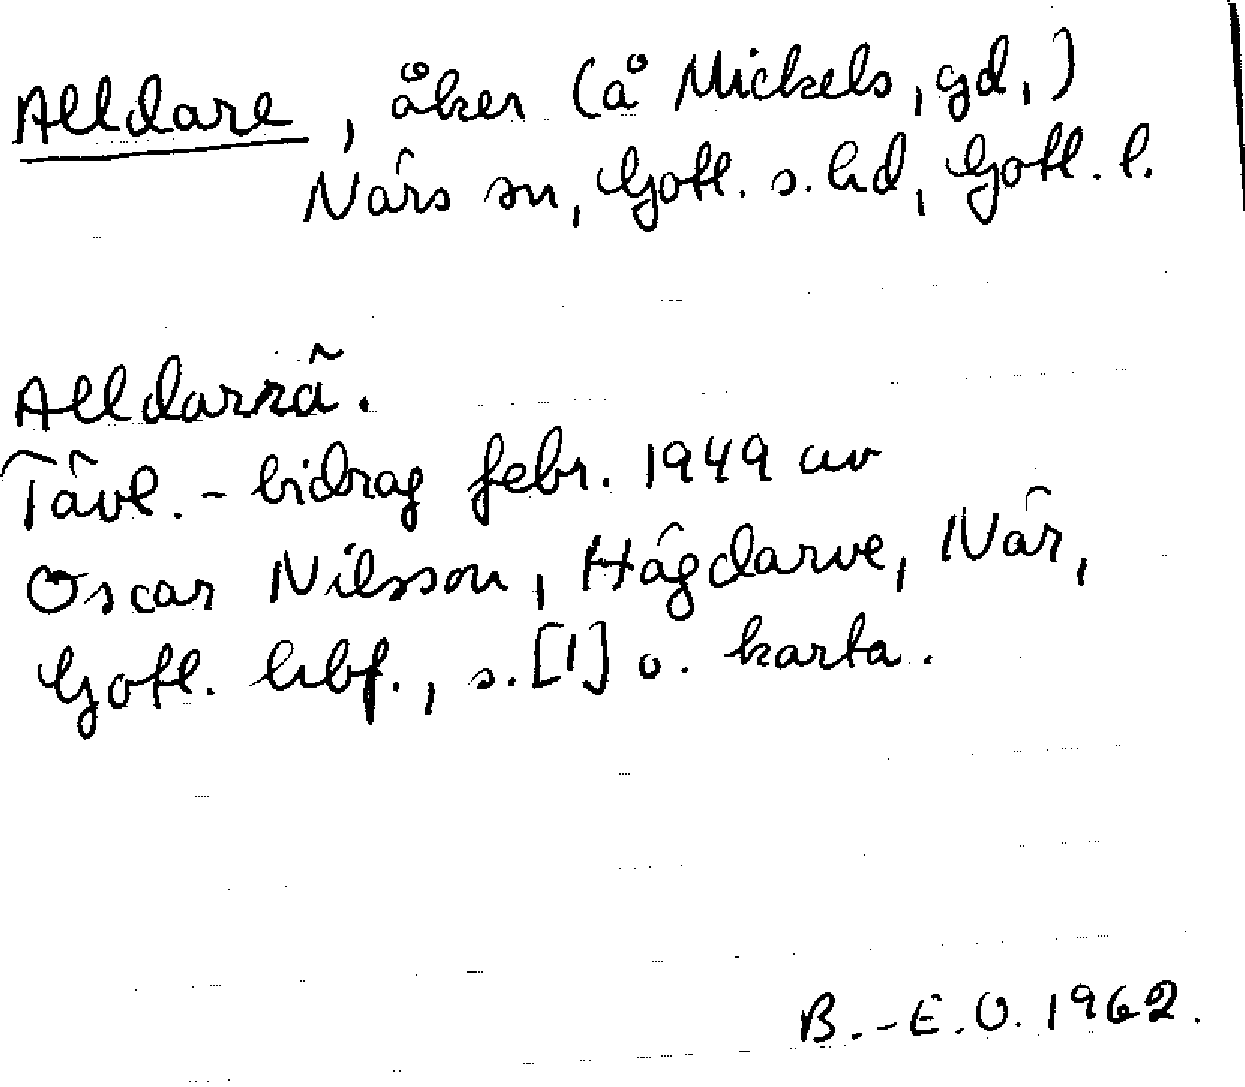 Alldare, åker (å Mickels, gd,)
Närs sn, Gotl. s. hd, Gotl. l.
Alldarrä̃.
Tävl.-bidrag febr. 1949 av
Oscar Nilsson, Hägdarve, När,
Gotl. hbf., s. [1] o. karta.
B.-E.O. 1962.